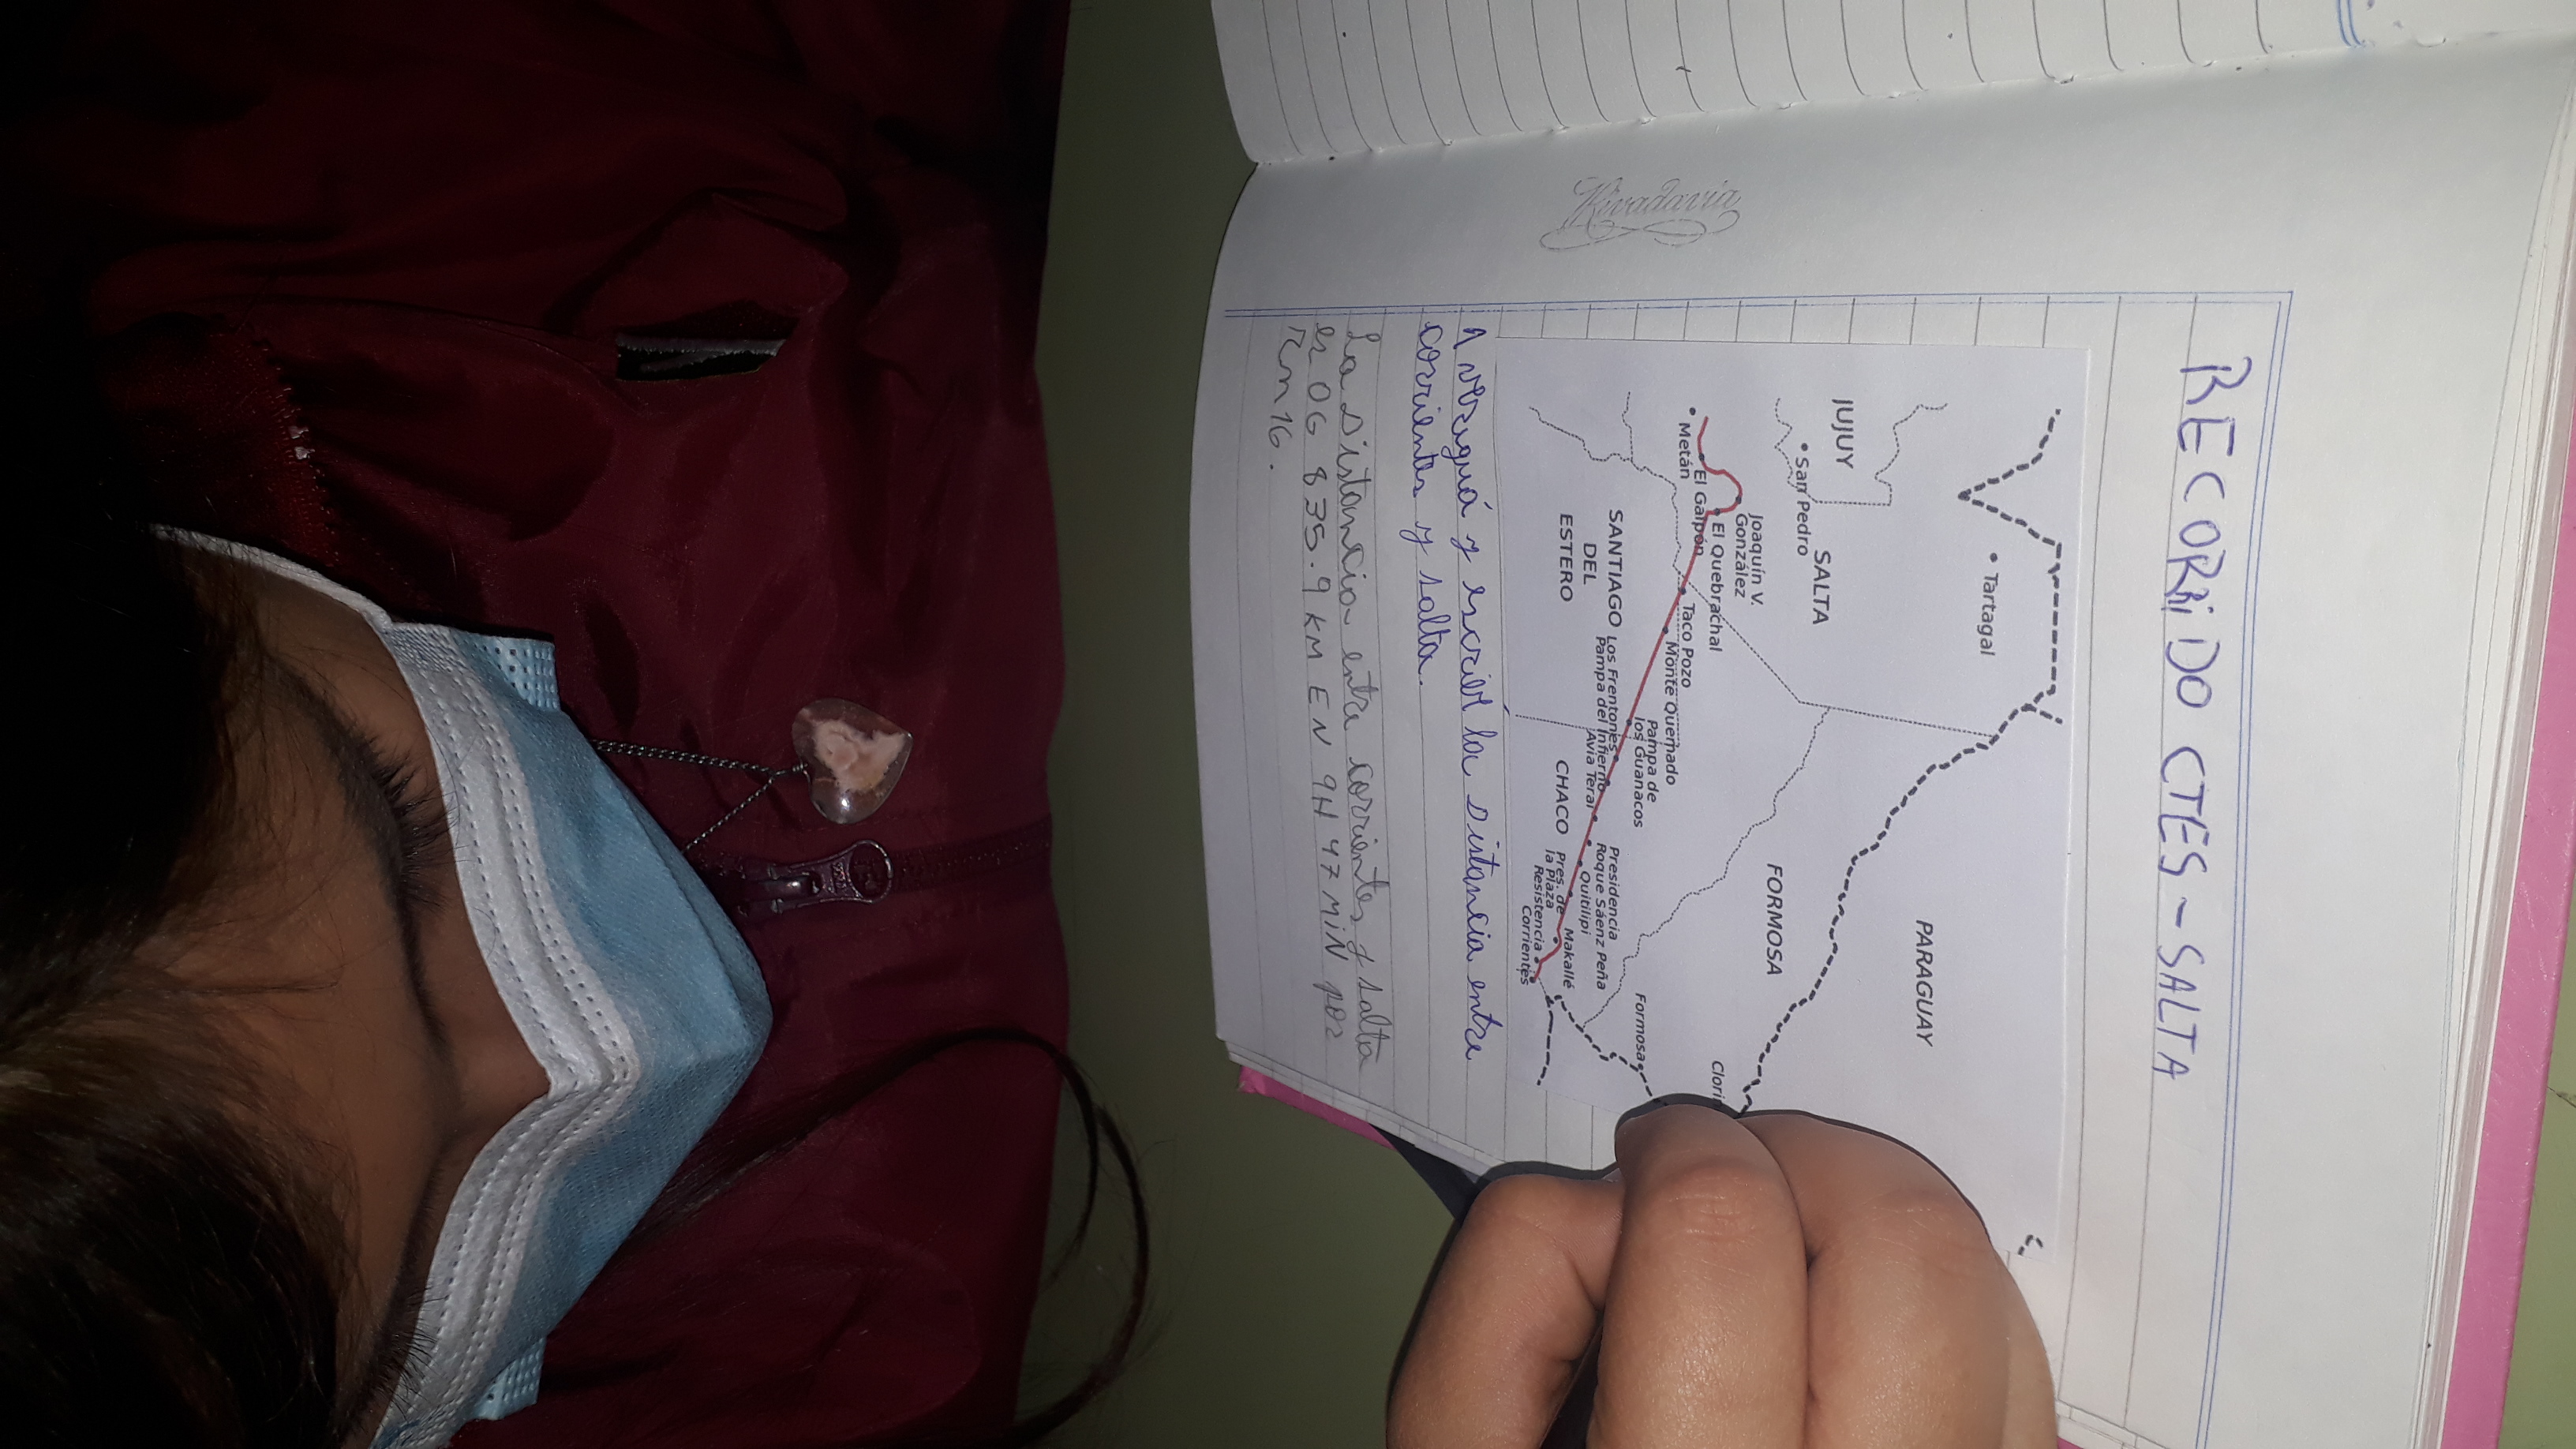 Rivadavia
RECORRIDO CTES - SALTA
PARAGUAY
Tartagal
JUJUY
SALTA
San Pedro
FORMOSA
Joaquín V.
González
El Quebrachal
El Galpón
Metán
Taco Pozo
Monte Quemado
SANTIAGO
DEL
ESTERO
Pampa de
los Guanacos
Los Frentones
Pampa del Infierno
Avia Terai
CHACO
Presidencia
Roque Sáenz Peña
Quitilipi
Pres. de
la Plaza
Makallé
Resistencia
Corrientes
Formosa
Clori
Averiguá y escribí la distancia entre
corrientes y salta.
La distancia entre corrientes y salta
es 06 835.9 KM EN 9H 47 MiN por
rn 16.